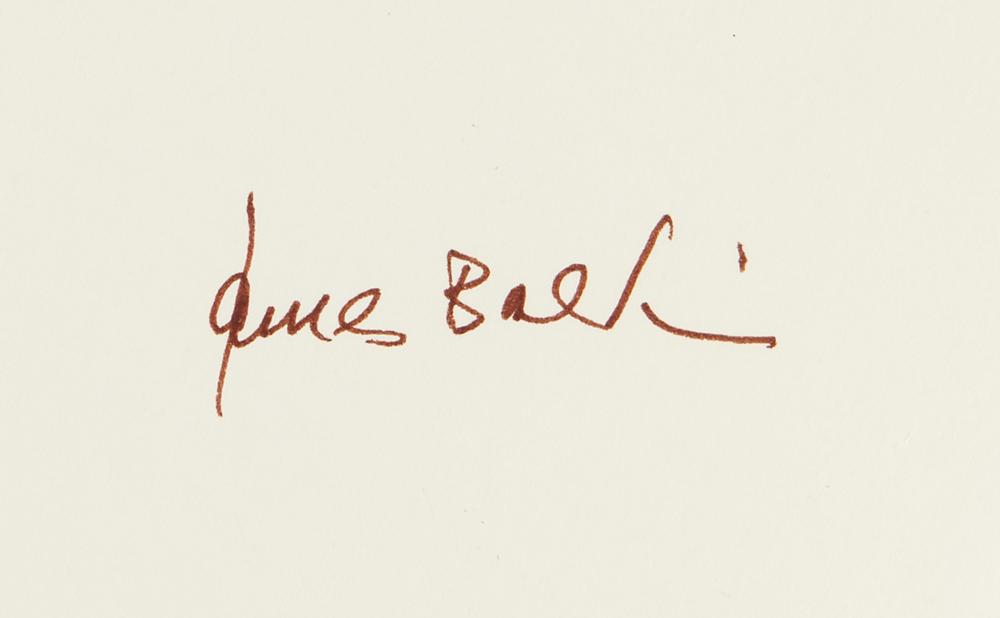 James Baldwin